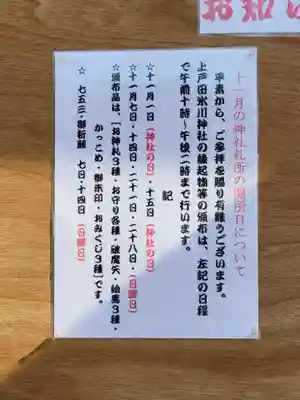 お知
十一月の神社札所の開所日について
平素から、ご参拝を賜り有難うございます。
上戸田氷川神社の縁起物等の頒布は、左記の日程
で午前十時～午後二時まで行います。
記
☆十一月一日(神社の日)・十五日(神社の日)
十一月七日・十四日・二十一日・二十八日(日曜日)
☆頒布品は、「お神札3種・お守り各種・破魔矢・絵馬3種・
かっこめ・御朱印・おみくじ3種」です。
☆ 七五三・御祈願 七日・十四日 (日曜日)